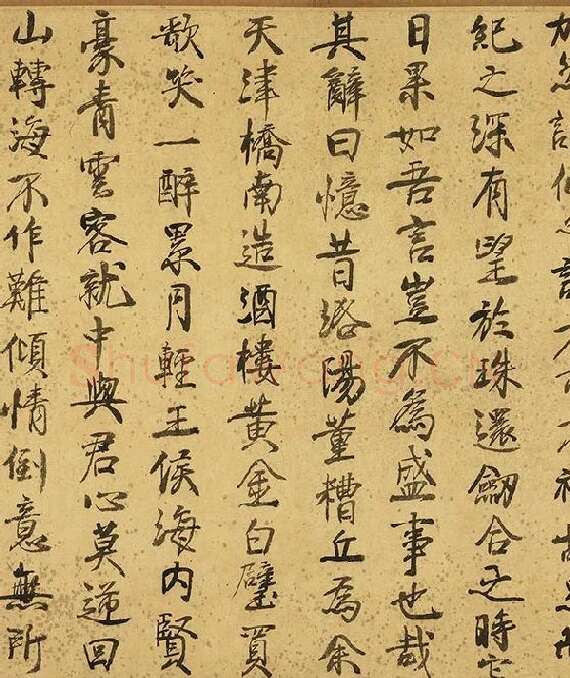 紀之深有望於珠還劒合之時它
日果如吾言豈不為盛事也哉
其辭曰憶昔洛陽董糟丘為余
天津橋南造酒樓黃金白璧買
歌笑一醉累月輕王侯海内賢
豪青雲客就中與君心莫逆回
山轉海不作難傾情倒意無所